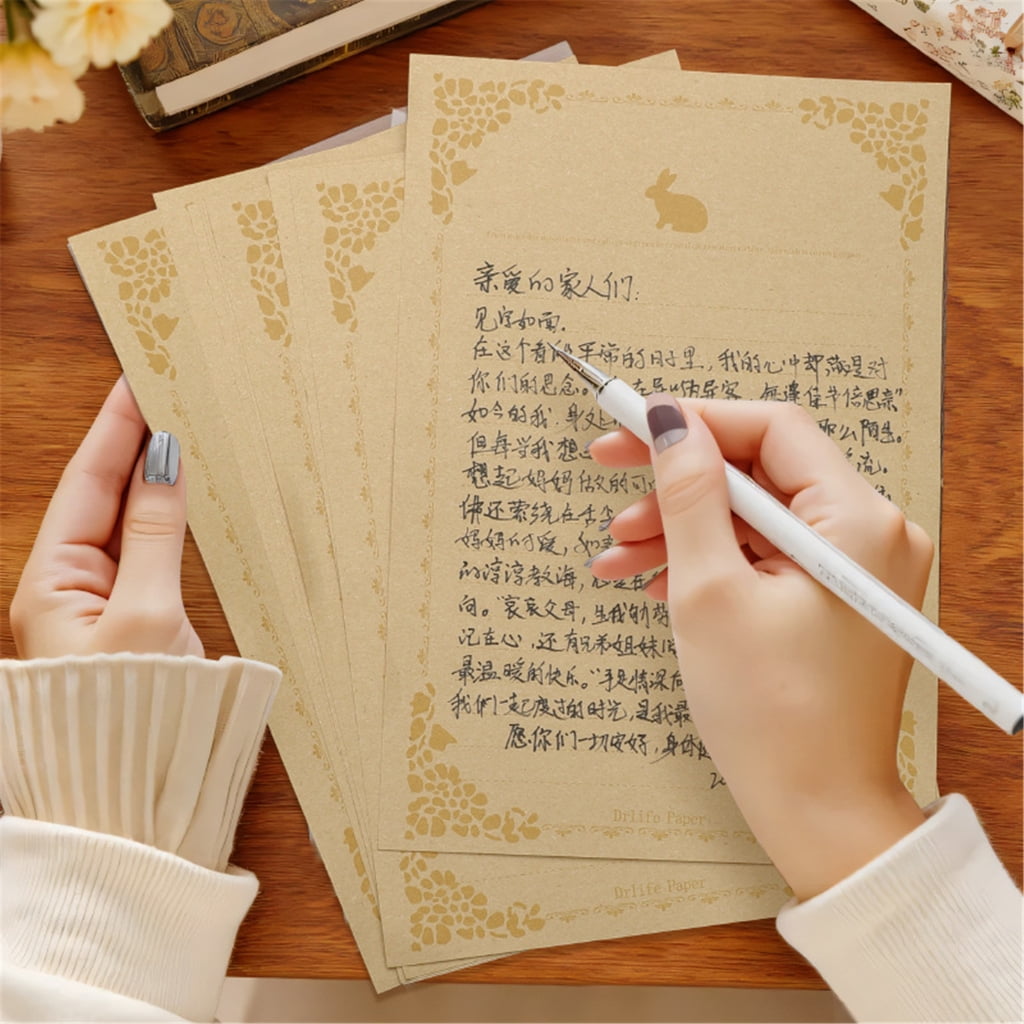 亲爱的家人们:
见字如面.
在这个看似平常的日子里,我的心中却满是对
你们的思念。在异 为异客,每逢佳节倍思亲"
如今的我,身处 那么陌生。
但每当我想 流。
想起妈妈做的可
佛还萦绕在舌尖
妈妈的 爱,如
的谆谆教诲,总是在
向。"哀哀父母,生我劬劳
记在心,还有兄弟姐妹
最温暖的快乐。"手足情深
我们一起度过的时光,是我最
愿你们一切安好,身体
Drlife Paper
Drlife Paper